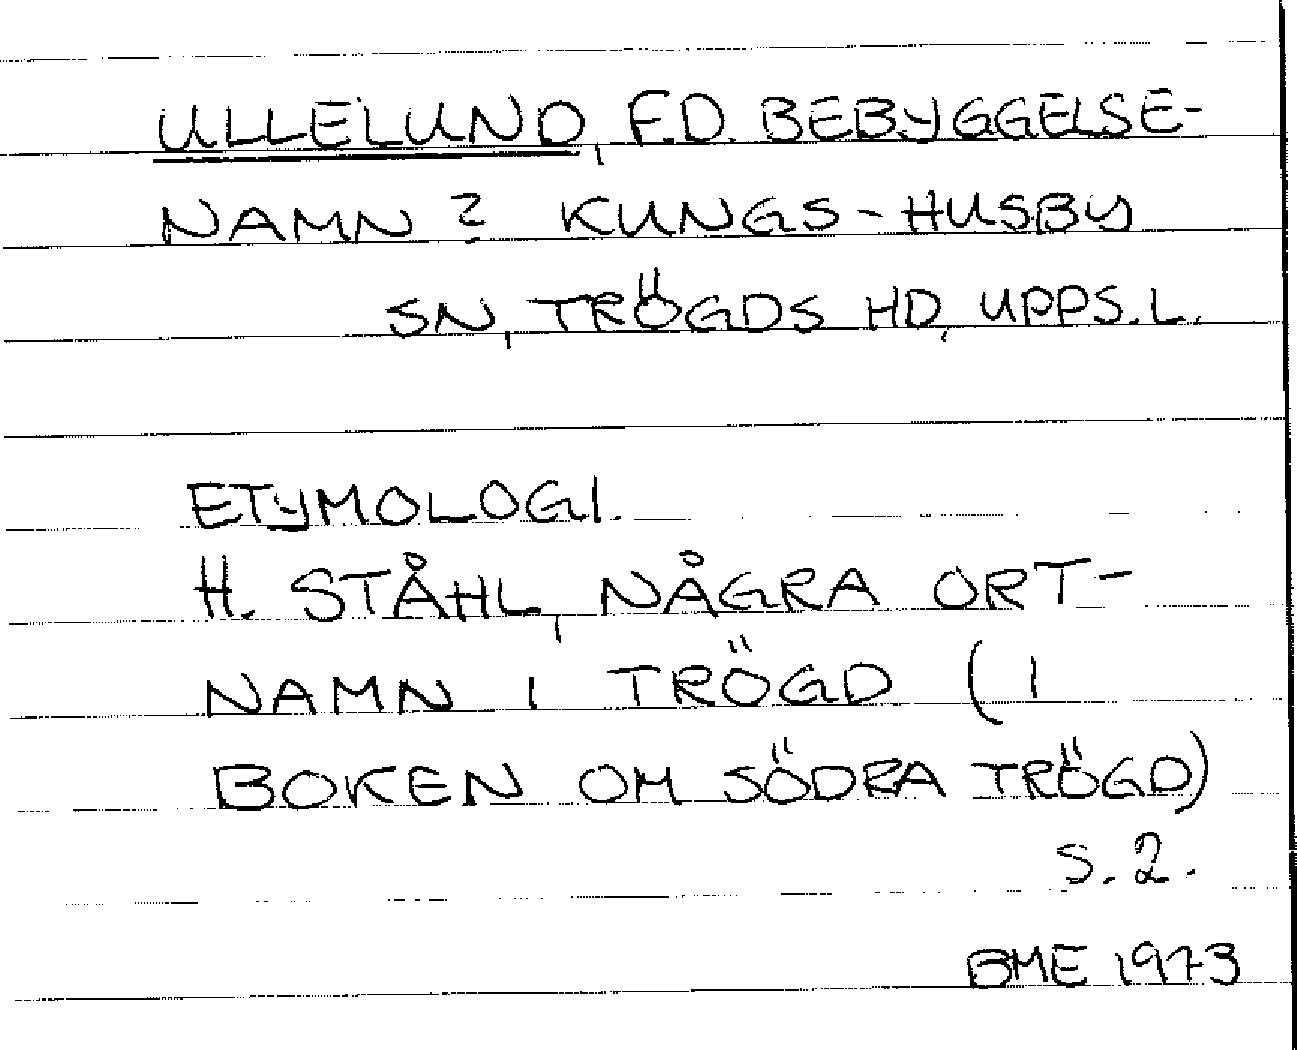 ULLELUND, F.D. BEBYGGELSE-
NAMN? KUNGS-HUSBY
SN, TRÖGDS HD, UPPS.L.
ETYMOLOGI.
H. STÅHL, NÅGRA ORT-
NAMN I TRÖGD (I
BOKEN OM SÖDRA TRÖGD)
S. 2.
BME 1973